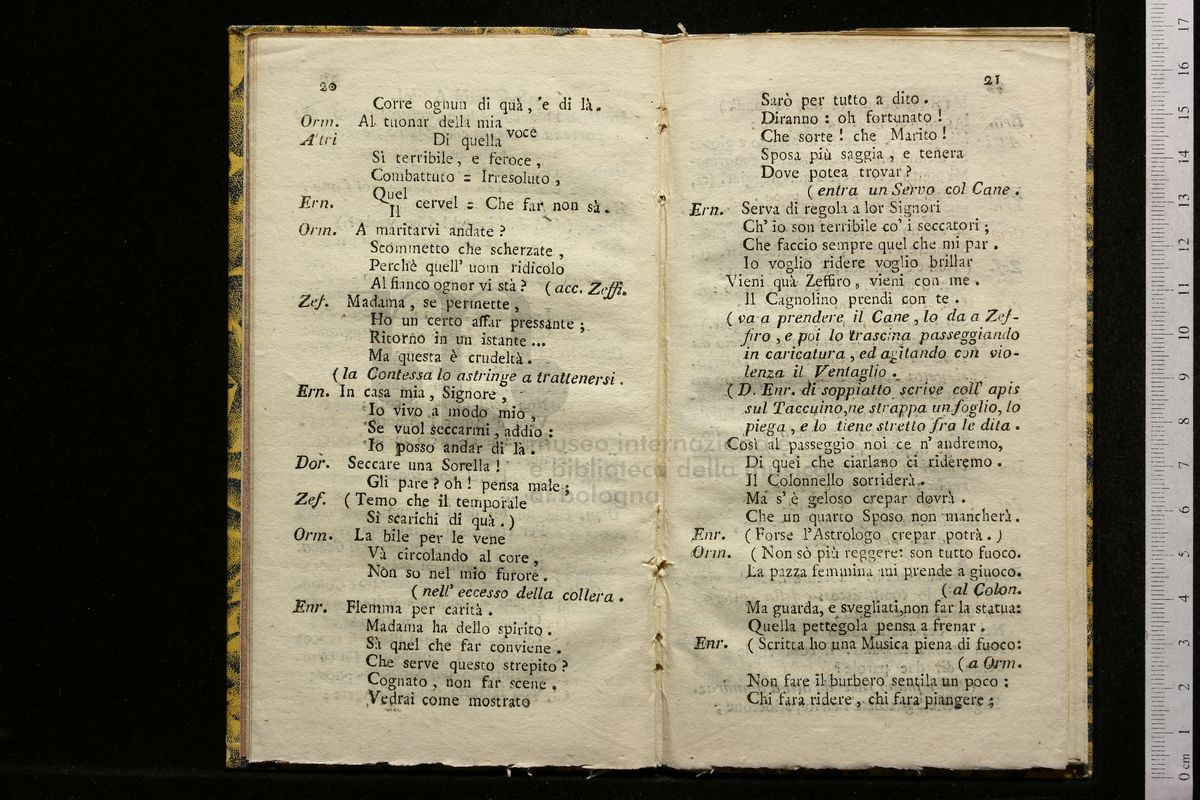 20
Corre ognun di quà, e di là.
Orm. Al tuonar della mia
Altri Di quella voce
Sì terribile, e feroce,
Combattuto = Irresoluto,
Quel
Ern. Il cervel = Che far non sà.
Orm. A maritarvi andate?
Scommetto che scherzate,
Perchè quell' uom ridicolo
Al fianco ognor vi stà? (acc. Zeffi.
Zef. Madama, se permette,
Ho un certo affar pressante;
Ritorno in un istante...
Ma questa è crudeltà.
(la Contessa lo astringe a trattenersi.
Ern. In casa mia, Signore,
Io vivo a modo mio,
Se vuol seccarmi, addio:
Io posso andar di là.
Dor. Seccare una Sorella!
Gli pare? oh! pensa male;
Zef. (Temo che il temporale
Si scarichi di quà.)
Orm. La bile per le vene
Và circolando al core,
Non so nel mio furore.
(nell' eccesso della collera.
Enr. Flemma per carità.
Madama ha dello spirito.
Sà quel che far conviene.
Che serve questo strepito?
Cognato, non far scene.
Vedrai come mostrato
21
Sarò per tutto a dito.
Diranno: oh fortunato!
Che sorte! che Marito!
Sposa più saggia, e tenera
Dove potea trovar?
(entra un Servo col Cane.
Ern. Serva di regola a lor Signori
Ch' io son terribile co' i seccatori;
Che faccio sempre quel che mi par.
Io voglio ridere voglio brillar
Vieni quà Zeffiro, vieni con me.
Il Cagnolino prendi con te.
(va a prendere il Cane, lo da a Zef-
firo, e poi lo trascina passeggiando
in caricatura, ed agitando con vio-
lenza il Ventaglio.
(D. Enr. di soppiatto scrive coll' apis
sul Taccuino, ne strappa un foglio, lo
piega, e lo tiene stretto fra le dita.
Così al passeggio noi ce n' andremo,
Di quei che ciarlano ci rideremo.
Il Colonnello sorriderà.
Ma s' è geloso crepar dovrà.
Che un quarto Sposo non mancherà.
Enr. (Forse l'Astrologo crepar potrà.)
Orm. (Non sò più reggere: son tutto fuoco.
La pazza femmina mi prende a giuoco.
(al Colon.
Ma guarda, e svegliati, non far la statua:
Quella pettegola pensa a frenar.
Enr. (Scritta ho una Musica piena di fuoco:
(a Orm.
Non fare il burbero sentila un poco:
Chi farà ridere, chi farà piangere;
museo internazionale
e biblioteca della musica
di bologna
0 cm 1 2 3 4 5 6 7 8 9 10 11 12 13 14 15 16 17